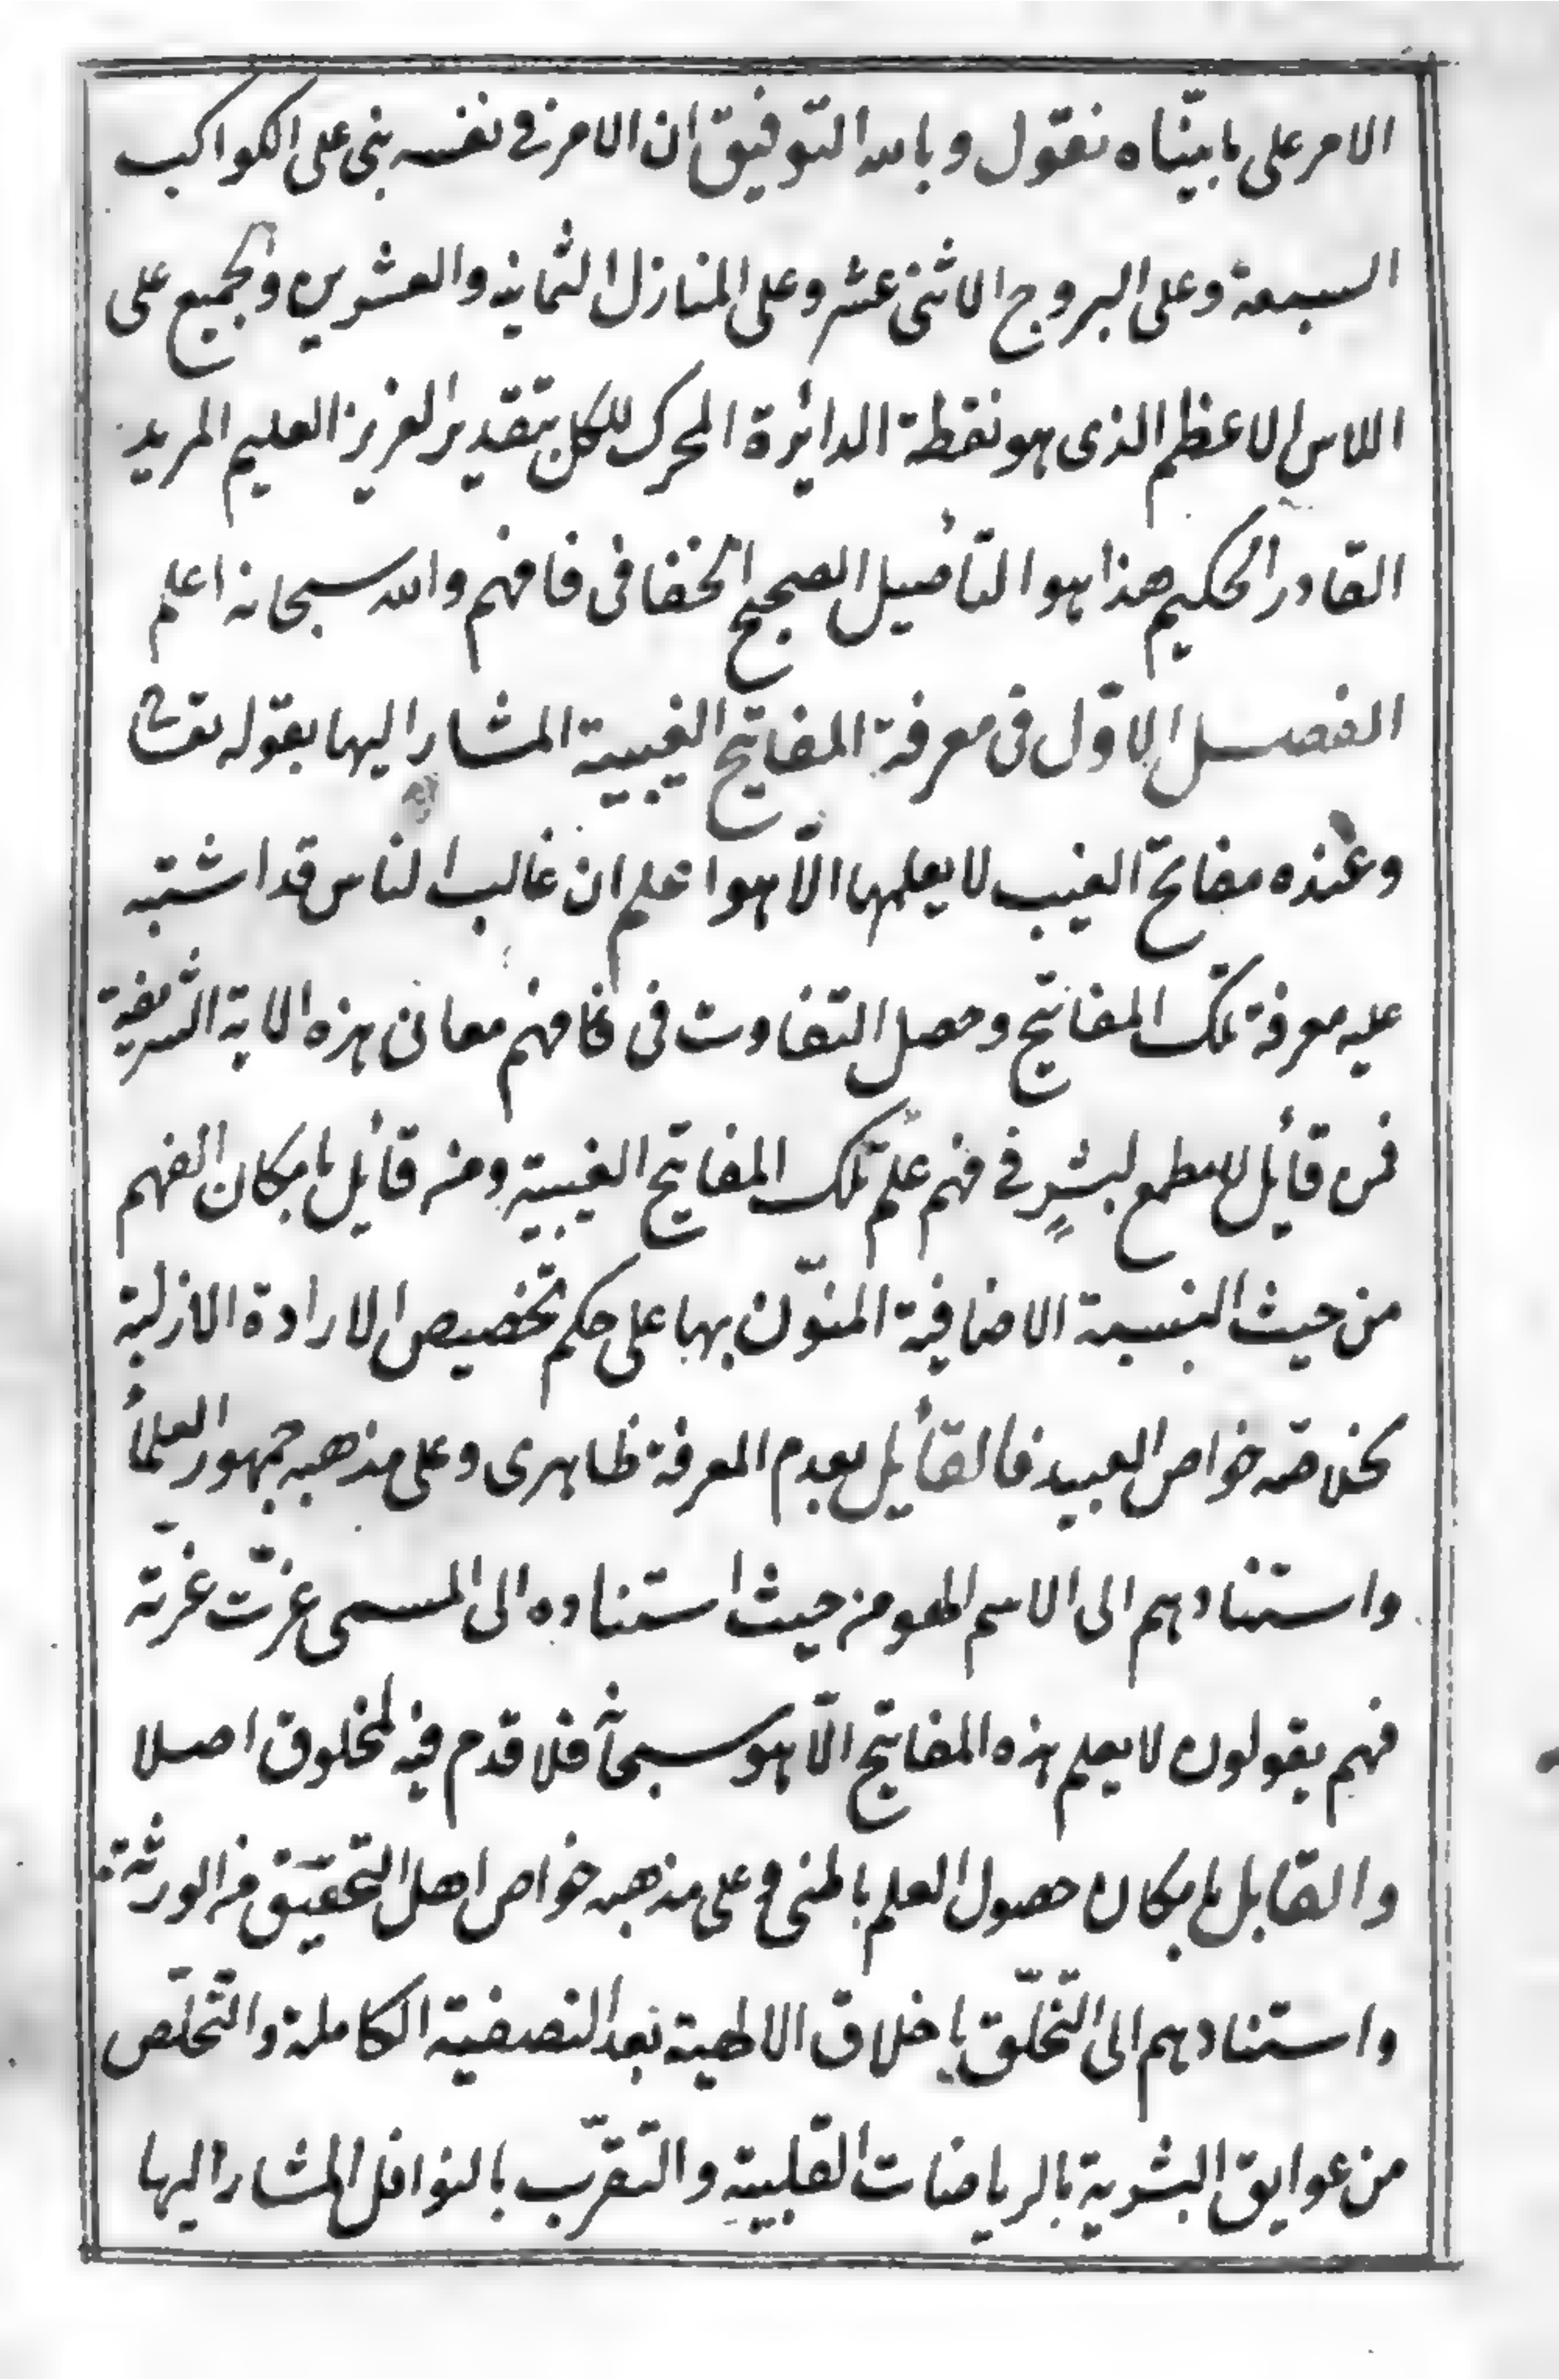 الامر على ما بيّناه نقول وبالله التوفيق ان الامر فى نفسه بنى على الكواكب
السبعة وعلى البروج الاثنى عشر وعلى المنازل الثمانية والعشرين والجميع على
الاس الاعظم الذى هو نقطة الدائرة المحرك للكل بتقدير العزيز العليم المريد
القادر الحكيم هذا هو التأصيل الصحيح الخفافى فافهم والله سبحانه اعلم
الفصل الاوّل فى معرفة المفاتيح الغيبية المشار اليها بقوله تعالى
وعنده مفاتح الغيب لا يعلمها الّا هو اعلم ان غالب الناس قد اشتبه
عليه معرفة تلك المفاتيح وحصل التفاوت فى فافهم معانى هذه الاية الشريفة
فمن قائل لا مطمع لبشرٍ فى فهم علم تلك المفاتيح الغيبية ومن قائل بامكان الفهم
من حيث النسبة الاضافية المنوّن بها على حكم تخصيص الارادة الازلية
لخلاصة خواص العبيد فالقائل بعدم المعرفة ظاهرى وعلى مذهبه جمهور العلمأ
واستنادهم الى الاسم الهو من حيث استناده الى المسمى عزّت عزته
فهم يقولون لا يعلم هذه المفاتيح الّا هو سبحانه فلا قدم فيه لمخلوق اصلا
والقابل بامكان حصول العلم باطنى وعلى مذهبه خواص اهل التحقيق من الورثة
واستنادهم الى التخلّق باخلاق الالهية بعد التصفية الكاملة والتخلّص
من عوايق البشرية بالرياضات القلبية والتقرّب بالنوافل المشار اليها